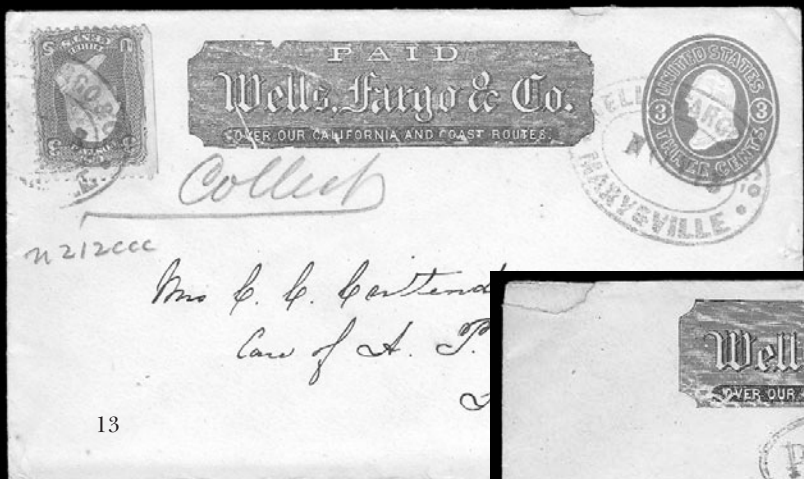 PAID
Wells, Fargo & Co.
OVER OUR CALIFORNIA AND COAST ROUTES.
UNITED STATES
3 3
THREE CENTS
MARYSVILLE
Collect
n212ccc
Mrs C. C.
Care of A. P.
13
Well
OVER OUR
P